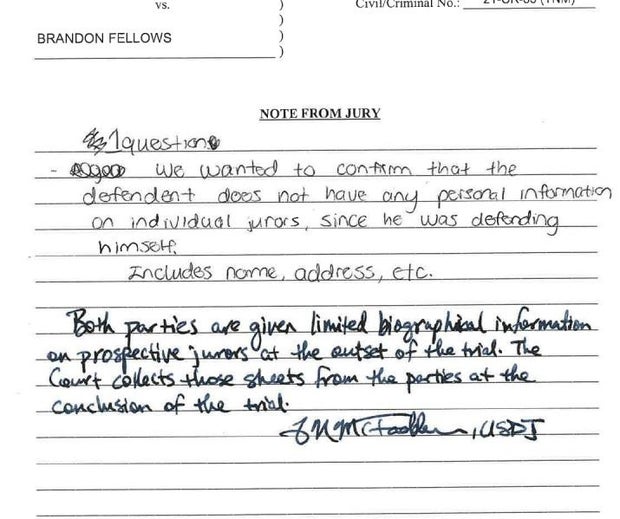 vs. ) Civil/Criminal No.: 21-CR-83 (TNM)
)
BRANDON FELLOWS )
)
NOTE FROM JURY
1 question
- We wanted to confirm that the
defendent does not have any personal information
on individual jurors, since he was defending
himself.
Includes name, address, etc.
Both parties are given limited biographical information
on prospective jurors at the outset of the trial. The
Court collects those sheets from the parties at the
conclusion of the trial.
McFadden, USDJ